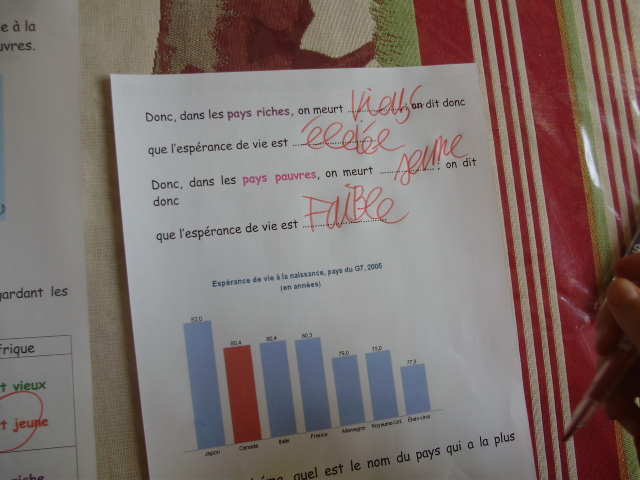 e à la
uvres.
Donc, dans les pays riches, on meurt vieux, on dit donc
que l'espérance de vie est
Donc, dans les pays pauvres, on meurt jeune ; on dit
donc
que l'espérance de vie est FaiBle
Espérance de vie à la naissance, pays du G7, 2005
(en années)
82,0
80,4
80,4
80,3
79,0
79,0
77,9
Japon
Canada
Italie
France
Allemagne
Royaume-Uni
États-Unis
quel est le nom du pays qui a la plus
gardant les
frique
t vieux
t jeune
riche